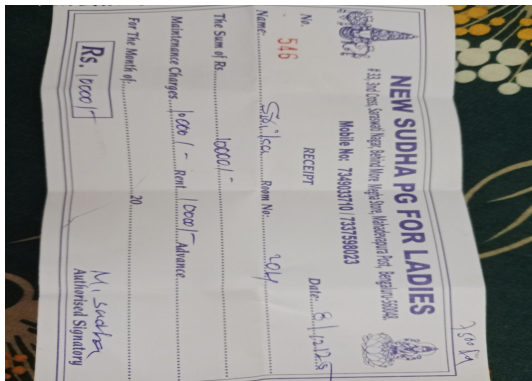 NEW SUDHA PG FOR LADIES
# 33, 3nd Cross, Saraswati Nagar, Behind More Megha Store, Mahadevapura Post, Bengaluru-560048.
Mobile No: 7349033710 / 7337598023
No. 546 RECEIPT Date: 8/12/25
Name: Room No. 204
The Sum of Rs. 10000/-
Maintenance Charges 10000/- Rent 10000/- Advance
For The Month of 20
Rs. 10000/-
M. Sudha
Authorised Signatory